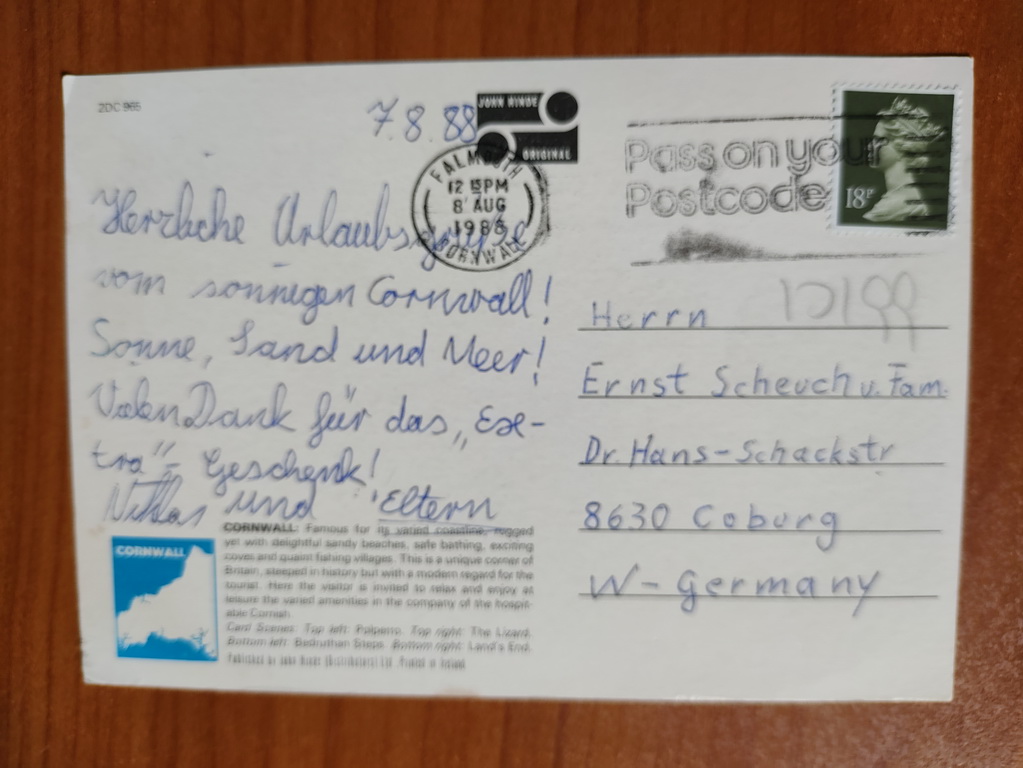 2DC 965
7.8.88
JOHN HINDE
ORIGINAL
FALMOUTH
12 15PM
8 AUG
1988
CORNWALL
Pass on your
Postcode
18P
Herzliche Urlaubsgrüße
vom sonnigen Cornwall!
Sonne, Sand und Meer!
Vielen Dank für das „Ex-
tra"- Geschenk!
Niklas und Eltern
Herrn
Ernst Scheuch u. Fam.
Dr. Hans-Schackstr
8630 Coburg
W-Germany
CORNWALL
CORNWALL: Famous for its varied coastline, rugged
yet with delightful sandy beaches, safe bathing, exciting
coves and quaint fishing villages. This is a unique corner of
Britain, steeped in history but with a modern regard for the
tourist. Here the visitor is invited to relax and enjoy at
leisure the varied amenities in the company of the hospit-
able Cornish.
Card Scenes: Top left: Polperro. Top right: The Lizard.
Bottom left: Bedruthan Steps. Bottom right: Land's End.
Published by John Hinde (Distributors) Ltd. Printed in Ireland